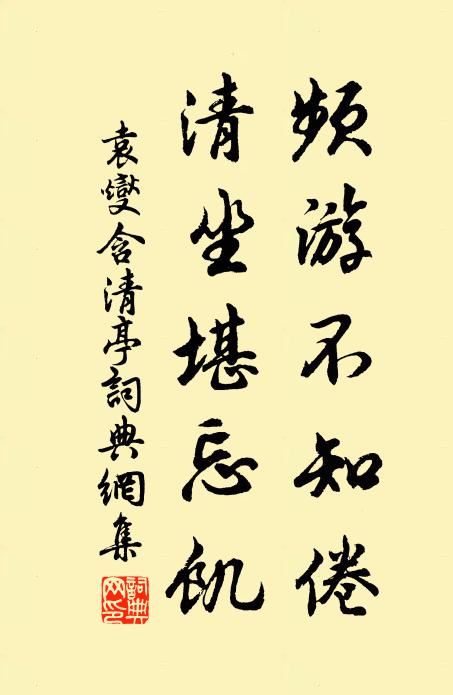 頻游不知倦
清坐堪忘飢
袁燮含清亭詞典網集
詞典網印